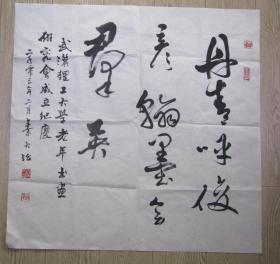 丹青呼俊
彦翰墨会
群英
武汉理工大学老年书画
研究会成立纪庆
二〇〇三年二月